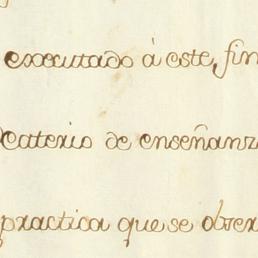 executado à este, fin
Caterio de enseñanz
practica que se obser